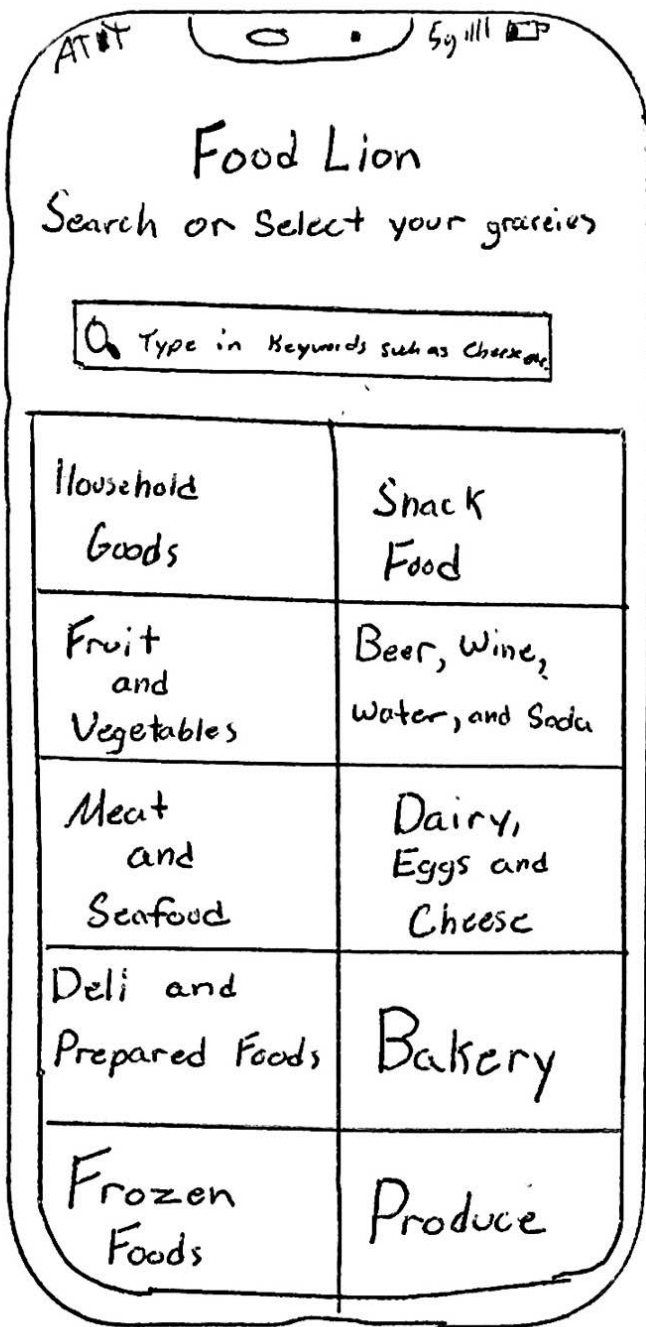 AT&T
5g
Food Lion
Search or Select your graceies
Type in Keywords such as Cheese
Household
Goods
Snack
Food
Fruit
and
Vegetables
Beer, Wine,
Water, and Soda
Meat
and
Seafood
Dairy,
Eggs and
Cheese
Deli and
Prepared Foods
Bakery
Frozen
Foods
Produce